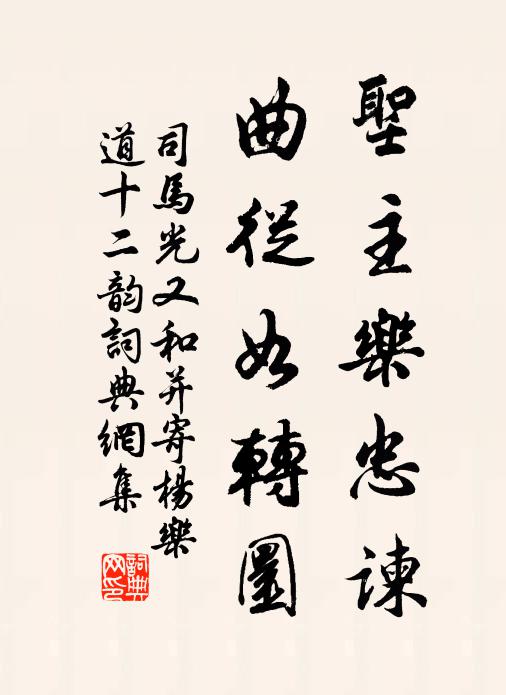 聖主樂忠諫
曲從如轉圜
司馬光又和并寄楊樂
道十二韵詞典網集
詞典
网印